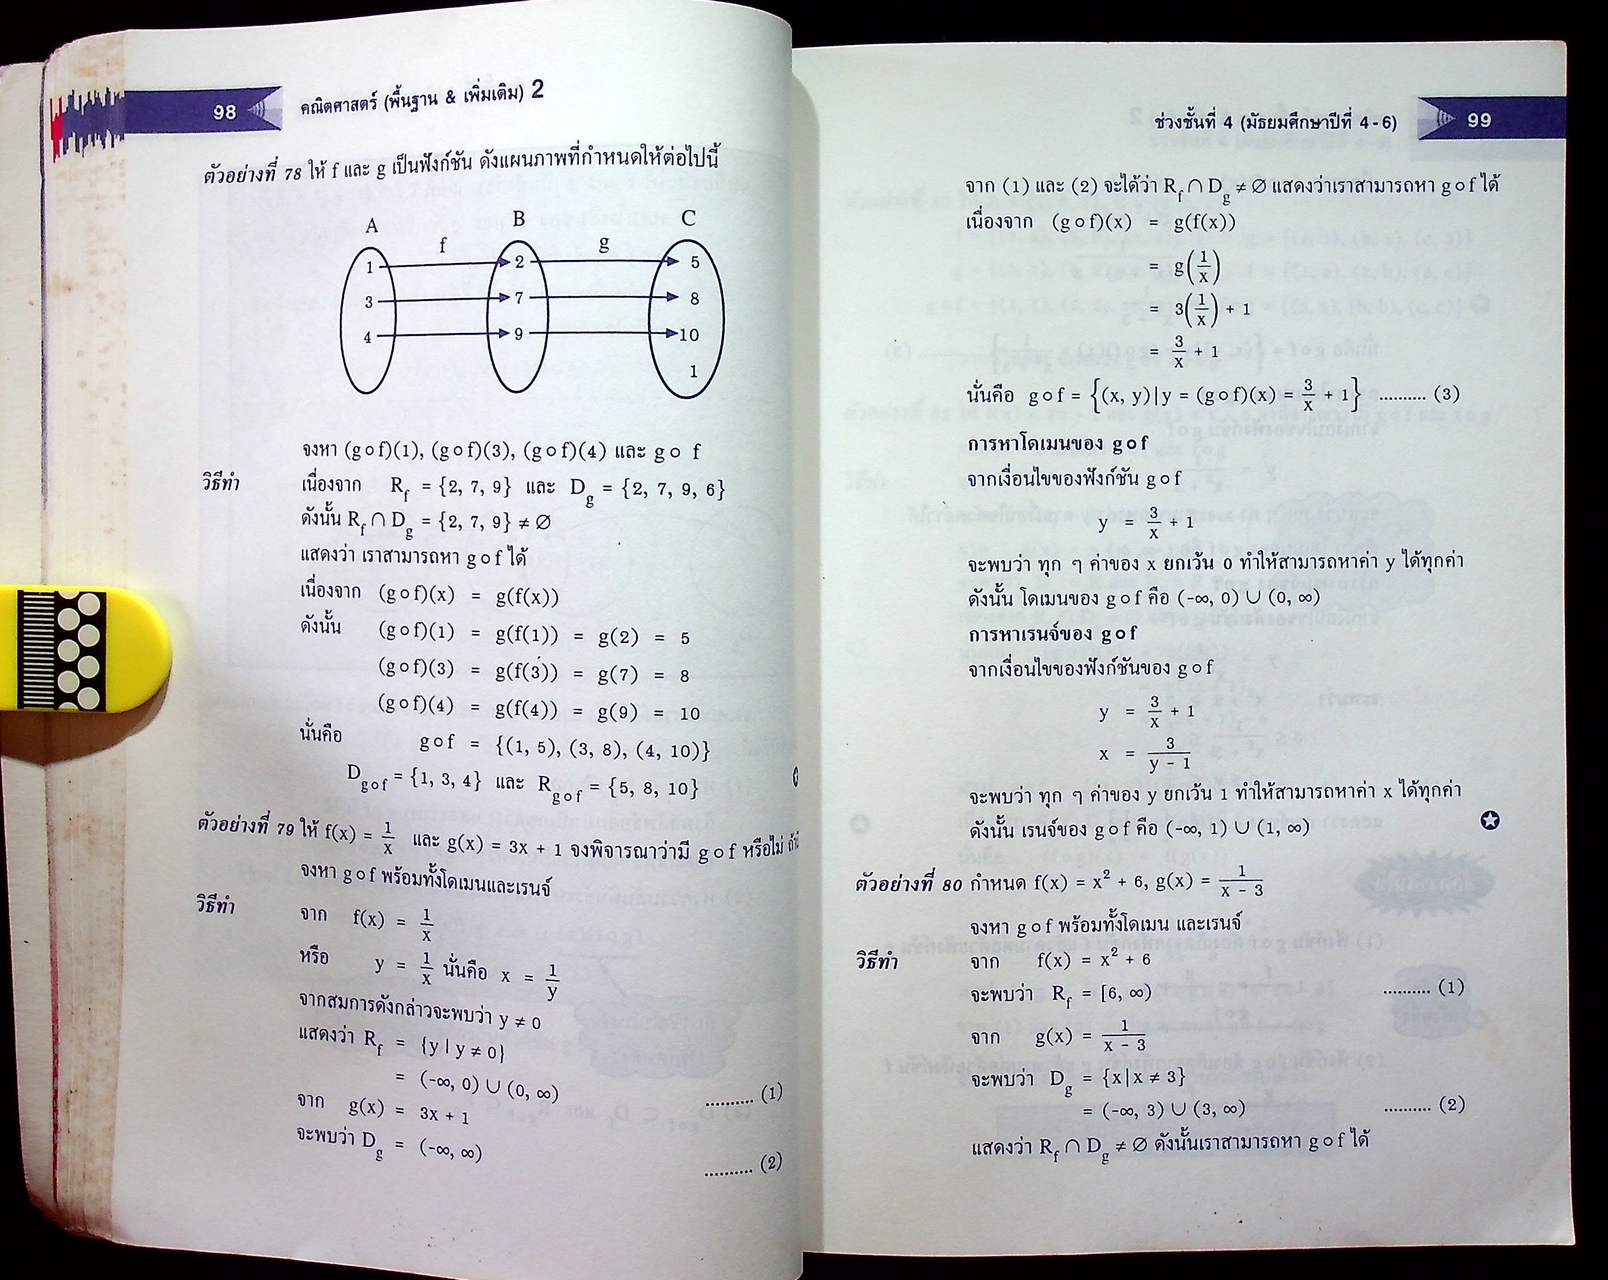 98 คณิตศาสตร์ (พื้นฐาน & เพิ่มเติม) 2
ตัวอย่างที่ 78 ให้ f และ g เป็นฟังก์ชัน ดังแผนภาพที่กำหนดให้ต่อไปนี้
A B C
f g
1 2 5
3 7 8
4 9 10
1
จงหา (g∘f)(1), (g∘f)(3), (g∘f)(4) และ g∘ f
วิธีทำ เนื่องจาก R_f = {2, 7, 9} และ D_g = {2, 7, 9, 6}
ดังนั้น R_f ∩ D_g = {2, 7, 9} ≠ ∅
แสดงว่า เราสามารถหา g∘f ได้
เนื่องจาก (g∘f)(x) = g(f(x))
ดังนั้น (g∘f)(1) = g(f(1)) = g(2) = 5
(g∘f)(3) = g(f(3)) = g(7) = 8
(g∘f)(4) = g(f(4)) = g(9) = 10
นั่นคือ g∘f = {(1, 5), (3, 8), (4, 10)}
D_g∘f = {1, 3, 4} และ R_g∘f = {5, 8, 10}
ตัวอย่างที่ 79 ให้ f(x) = 1/x และ g(x) = 3x + 1 จงพิจารณาว่ามี g∘f หรือไม่
จงหา g∘f พร้อมทั้งโดเมนและเรนจ์
วิธีทำ จาก f(x) = 1/x
หรือ y = 1/x นั่นคือ x = 1/y
จากสมการดังกล่าวจะพบว่า y ≠ 0
แสดงว่า R_f = {y | y ≠ 0}
= (-∞, 0) ∪ (0, ∞) .......... (1)
จาก g(x) = 3x + 1
จะพบว่า D_g = (-∞, ∞) .......... (2)
ช่วงชั้นที่ 4 (มัธยมศึกษาปีที่ 4-6) 99
จาก (1) และ (2) จะได้ว่า R_f ∩ D_g ≠ ∅ แสดงว่าเราสามารถหา g∘f ได้
เนื่องจาก (g∘f)(x) = g(f(x))
= g(1/x)
= 3(1/x) + 1
= 3/x + 1
นั่นคือ g∘f = {(x, y)|y = (g∘f)(x) = 3/x + 1} .......... (3)
การหาโดเมนของ g∘f
จากเงื่อนไขของฟังก์ชัน g∘f
y = 3/x + 1
จะพบว่า ทุก ๆ ค่าของ x ยกเว้น 0 ทำให้สามารถหาค่า y ได้ทุกค่า
ดังนั้น โดเมนของ g∘f คือ (-∞, 0) ∪ (0, ∞)
การหาเรนจ์ของ g∘f
จากเงื่อนไขของฟังก์ชันของ g∘f
y = 3/x + 1
x = 3/(y - 1)
จะพบว่า ทุก ๆ ค่าของ y ยกเว้น 1 ทำให้สามารถหาค่า x ได้ทุกค่า
ดังนั้น เรนจ์ของ g∘f คือ (-∞, 1) ∪ (1, ∞)
ตัวอย่างที่ 80 กำหนด f(x) = x² + 6, g(x) = 1/(x - 3)
จงหา g∘f พร้อมทั้งโดเมน และเรนจ์
วิธีทำ จาก f(x) = x² + 6
จะพบว่า R_f = [6, ∞) .......... (1)
จาก g(x) = 1/(x - 3)
จะพบว่า D_g = {x|x ≠ 3}
= (-∞, 3) ∪ (3, ∞) .......... (2)
แสดงว่า R_f ∩ D_g ≠ ∅ ดังนั้นเราสามารถหา g∘f ได้